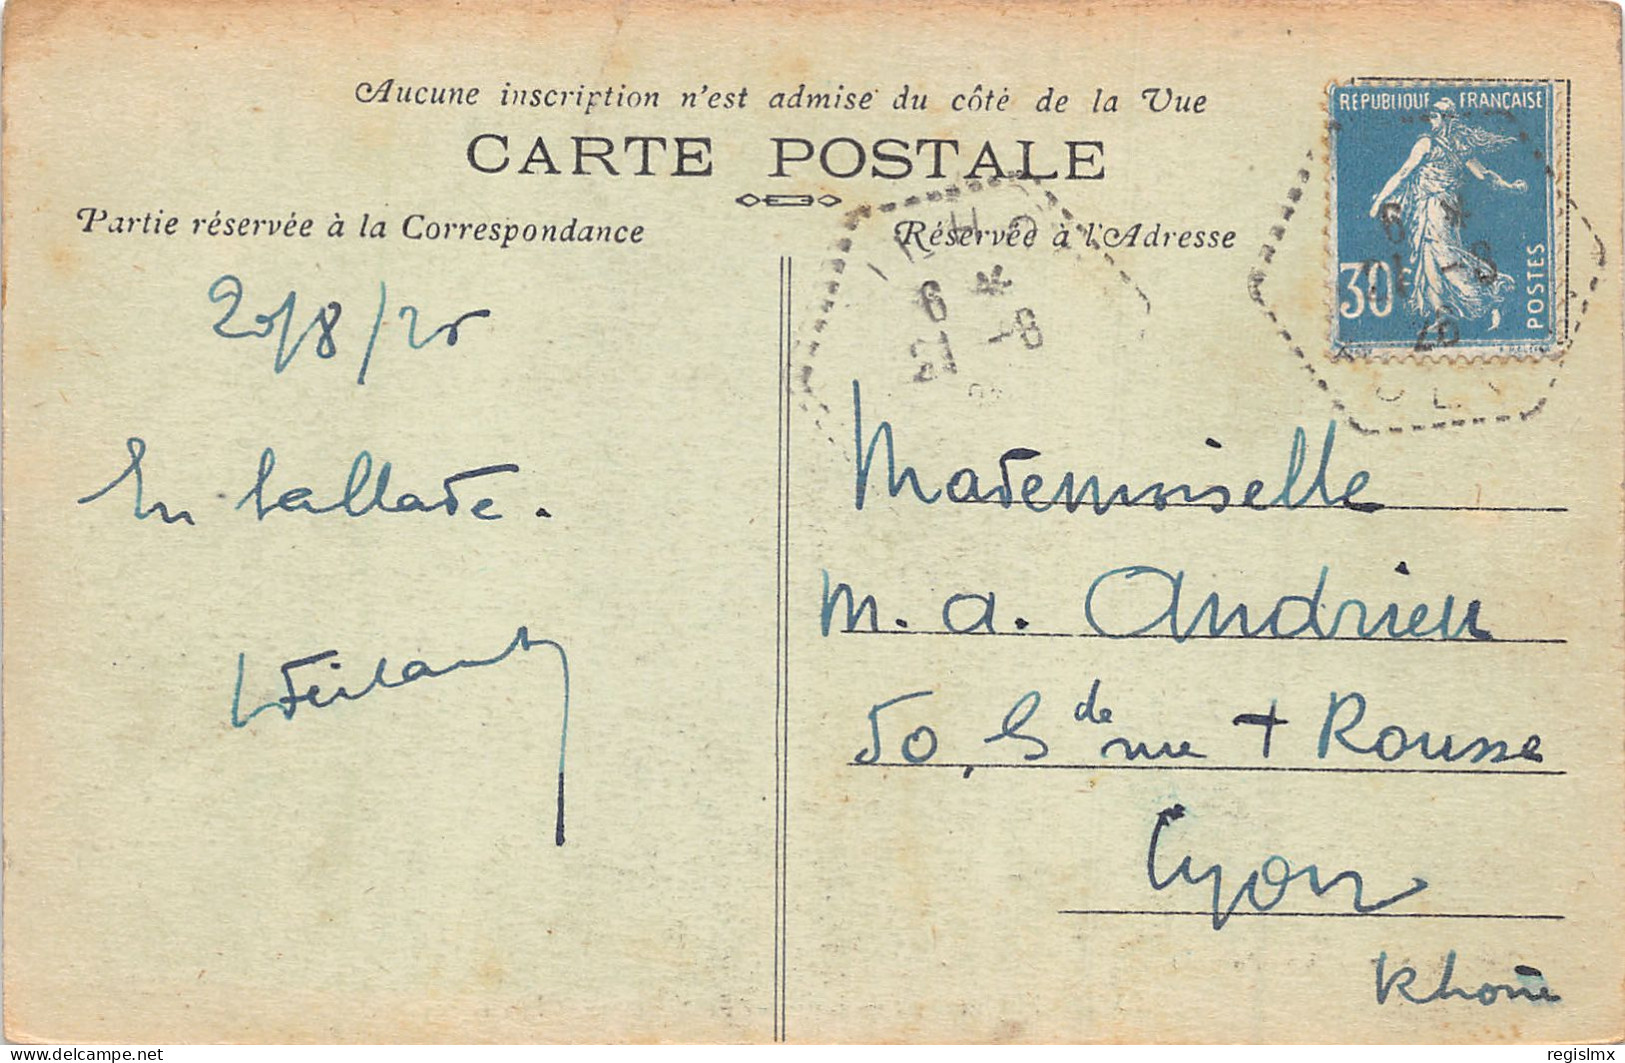 Aucune inscription n'est admise du côté de la Vue
CARTE POSTALE
Partie réservée à la Correspondance
Réservée à l'Adresse
RÉPUBLIQUE FRANÇAISE
30c
POSTES
6 *
21 -8
6 *
21 -8
26
En ballade.
Mademoiselle
M. A. Andrieu
50, Gde rue + Rousse
Lyon
Rhône
delcampe.net
regislmx